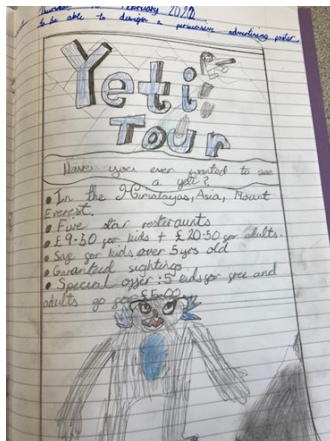 February 2022
to be able to design a persuasive advertising poster.
Yeti
Tour
Have you ever wanted to see
a yeti?
• In the Himalayas, Asia, Mount
Everest.
• Five star resteraunts
• £9:50 for kids + £20:50 for adults.
• Safe for kids over 5yrs old
• Guranteed sightings
• Special offer: 5 kids for free and
adults go for £5:00